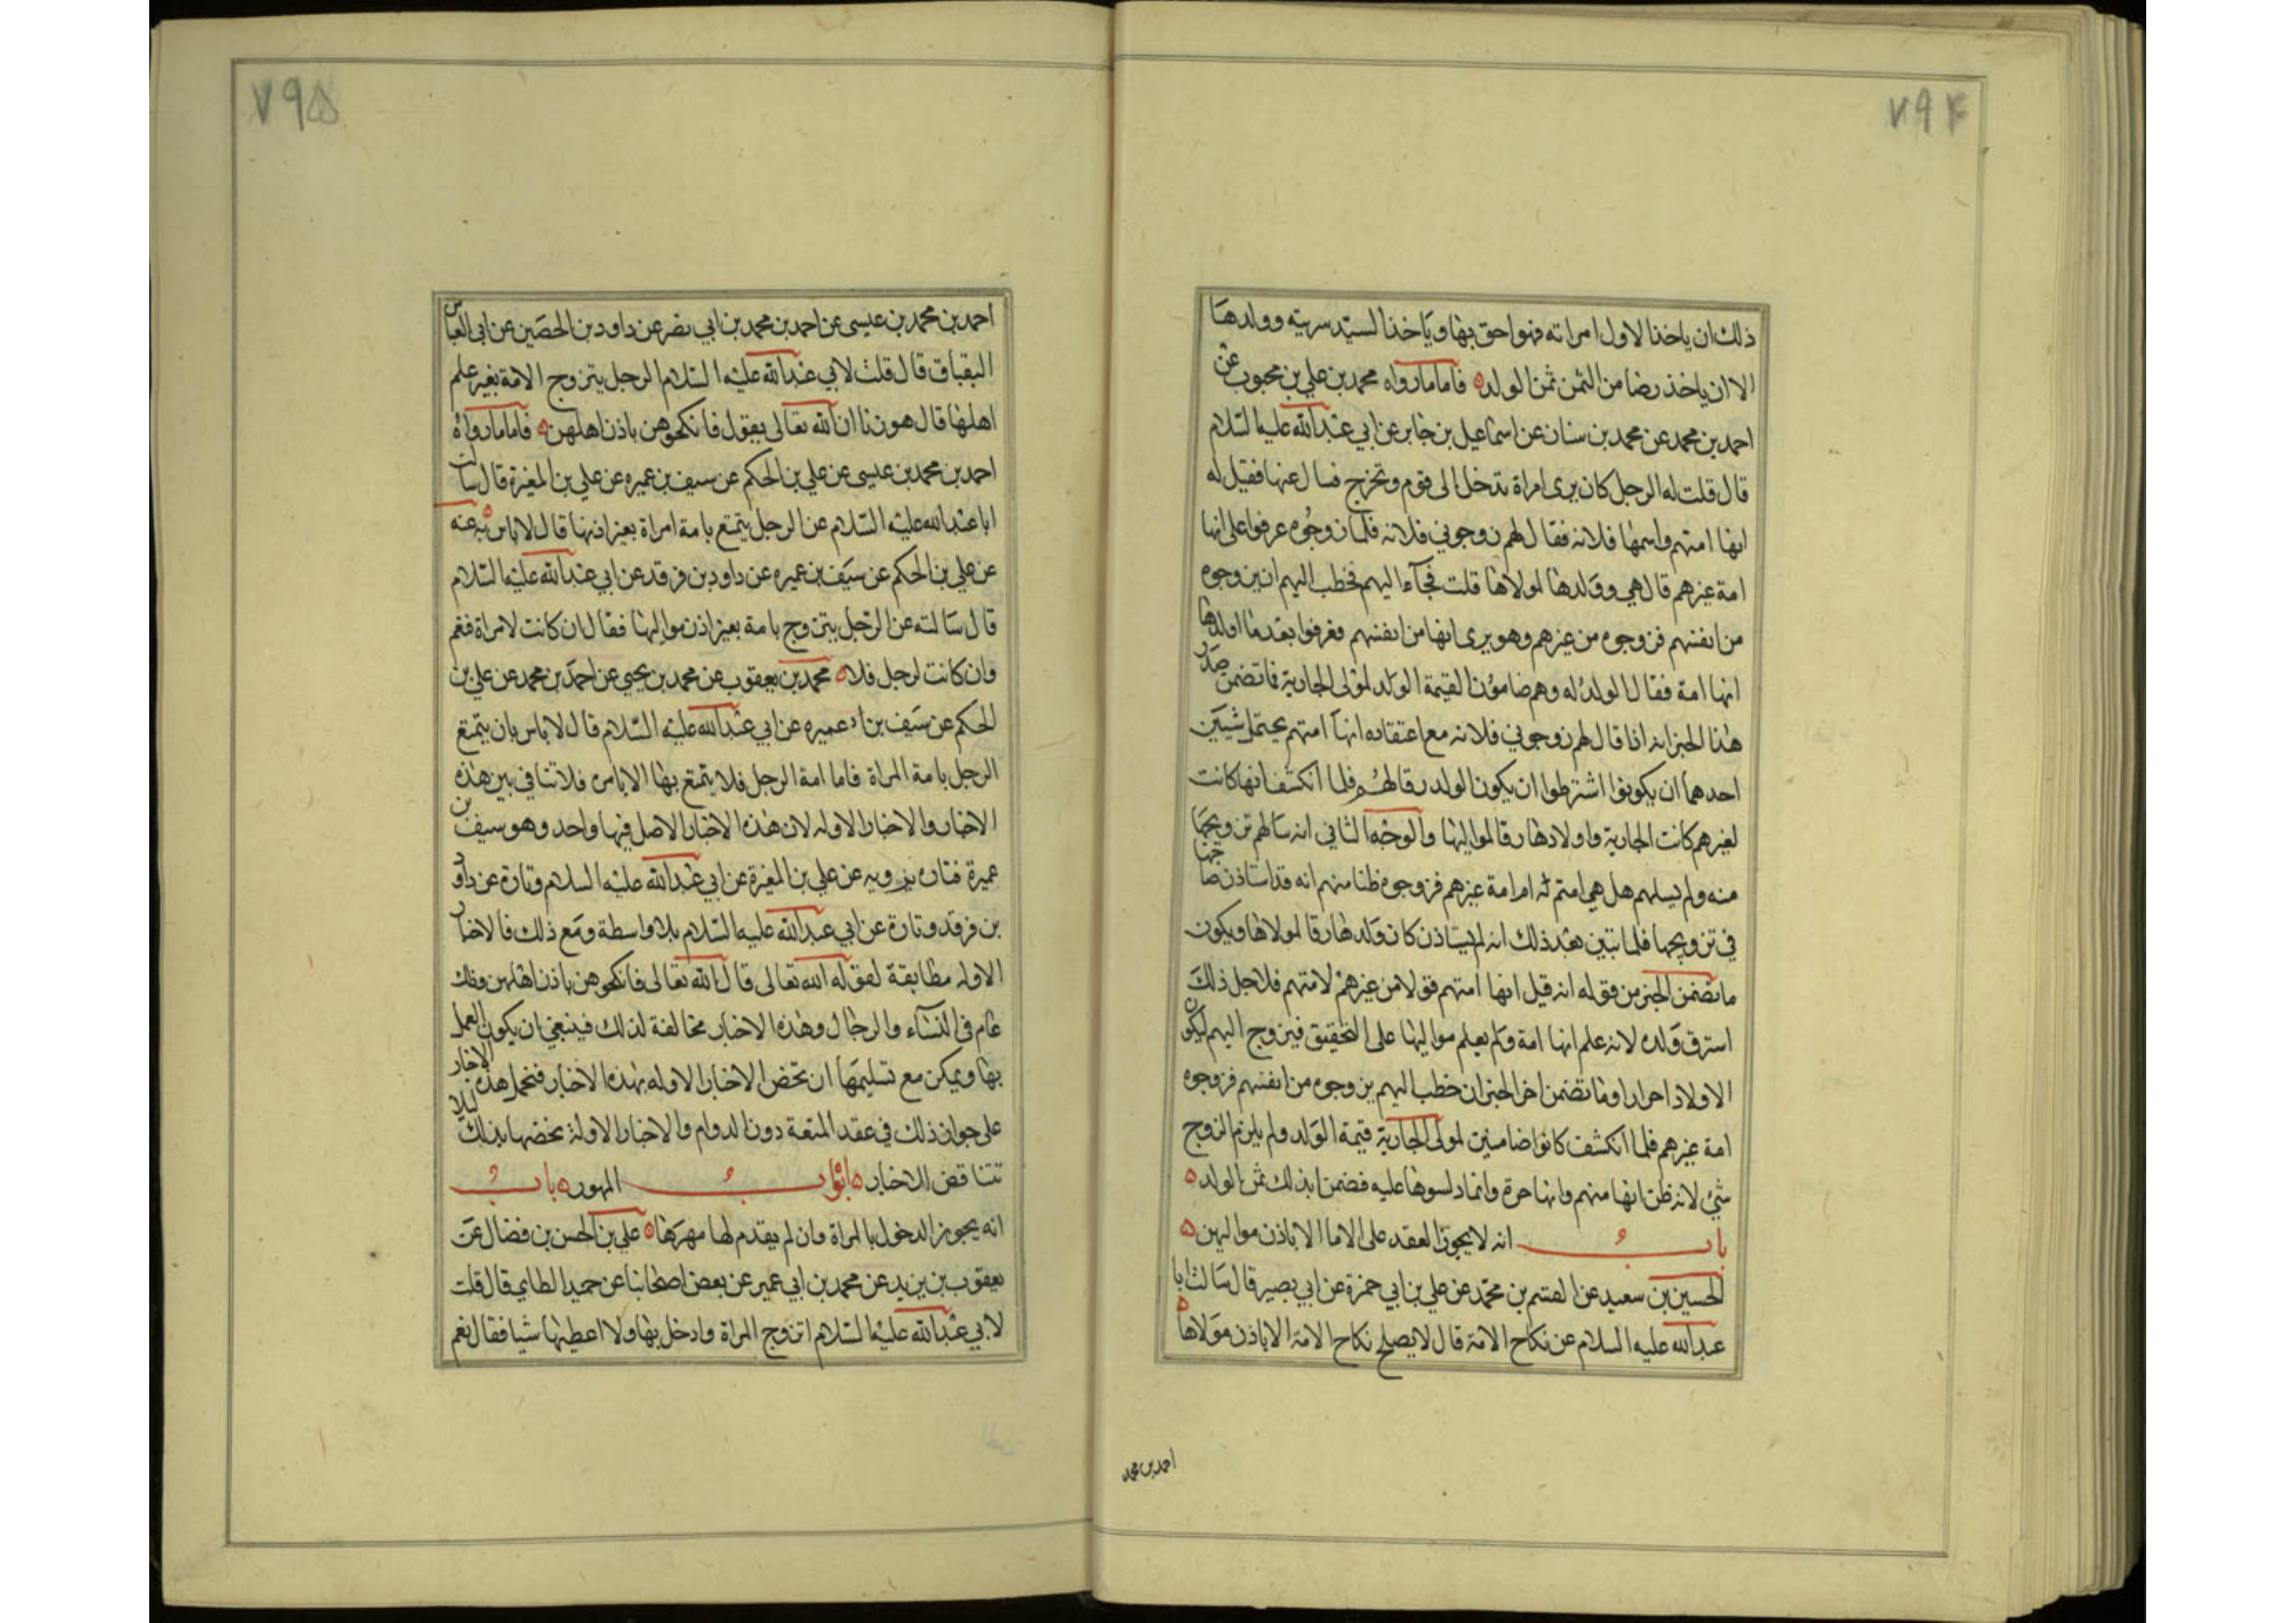 ۷۹۴
ذلك ان ياخذ الاول امراته فهو احق بها وياخذ السيد سريته وولدها
الا ان ياخذ رضا من الثمن ثمن الولد ه فاما ما رواه محمد بن علي بن محبوب عن
احمد بن محمد عن محمد بن سنان عن اسماعيل بن جابر عن ابي عبدالله عليه السلام
قال قلت له الرجل كان يرى امراة تدخل الى قوم وتخرج فسال عنها فقيل له
انها امتهم واسمها فلانه فقال لهم زوجوني فلانه فلما زوجوه عرفوا على انها
امة غيرهم قال هي وولدها لمولاها قلت فجآء اليهم فخطب اليهم ان يزوجوه
من انفسهم فزوجوه من غيرهم وهو يرى انها من انفسهم فعرفوا بعد ما اولدها
انها امة فقال الولد له وهم ضامنون القيمة الولد لمولى الجارية فما تضمن صدر
هذا الخبر انه اذا قال لهم زوجوني فلانه مع اعتقاده انها امتهم يحتمل شيئين
احدهما ان يكونوا اشترطوا ان يكون الولد رقا لهم فلما انكشف انها كانت
لغيرهم كانت الجارية واولادها رقا لمواليها والوجه الثاني انه سالهم تزويجها
منه ولم يسلهم هل هي امتهم ام امة غيرهم فزوجوه ظنا منهم انه قد استاذن صاحبها
في تزويجها فلما تبين بعد ذلك انه لم يستاذن كان ولدها رقا لمولاها ويكون
ما تضمن الخبر من قوله انه قيل انها امتهم قولا من غيرهم لامتهم فلاجل ذلك
استرق ولده لانه علم انها امة ولم يعلم مواليها على التحقيق فيزوج اليهم ليكون
الاولاد احرارا وما تضمن اخر الخبر ان خطب اليهم يزوجوه من انفسهم فزوجوه
امة غيرهم فلما انكشف كانوا ضامنين لمولى الجارية قيمة الولد ولم يلزم الزوج
شئ لانه ظن انها منهم وانها حرة وانما دلسوها عليه فضمن ابذلك ثمن الولد ه
باب انه لا يجوز العقد على الاما الا باذن مواليهن ه
الحسين بن سعيد عن القسم بن محمد عن علي بن ابي حمزة عن ابي بصير قال سالت ابا
عبدالله عليه السلام عن نكاح الامة قال لا يصلح نكاح الامة الا باذن مولاها ه
احمد بن محمد
۷۹۵
احمد بن محمد بن عيسى عن احمد بن محمد بن ابي نصر عن داود بن الحصين عن ابي العباس
البقباق قال قلت لابي عبدالله عليه السلام الرجل يتزوج الامة بغير علم
اهلها قال هو زنا ان الله تعالى يقول فانكحوهن باذن اهلهن ه فاما ما رواه
احمد بن محمد بن عيسى عن علي بن الحكم عن سيف بن عميره عن علي بن المغيرة قال سالت
ابا عبدالله عليه السلام عن الرجل يتمتع بامة امراة بغير اذنها قال لا باس به ه عنه
عن علي بن الحكم عن سيف بن عميره عن داود بن فرقد عن ابي عبدالله عليه السلام
قال سالته عن الرجل يتزوج بامة بغير اذن مواليها فقال ان كانت لامراة فنعم
وان كانت لرجل فلا ه محمد بن يعقوب عن محمد بن يحيى عن احمد بن محمد عن علي بن
الحكم عن سيف بن عميره عن ابي عبدالله عليه السلام قال لا باس بان يتمتع
الرجل بامة المراة فاما امة الرجل فلا يتمتع بها الا بامره فلا تنافي بين هذه
الاخبار والاخبار الاوله لان هذه الاخبار الاصل فيها واحد وهو سيف بن
عميرة فتاره يرويه عن علي بن المغيرة عن ابي عبدالله عليه السلام وتارة عن داود
بن فرقد وتارة عن ابي عبدالله عليه السلام بلا واسطة ومع ذلك فالاخبار
الاوله مطابقة لقوله الله تعالى قال الله تعالى فانكحوهن باذن اهلهن وذلك
عام في النسآء والرجال وهذه الاخبار مخالفة لذلك فينبغي ان يكون العمل
بها ويمكن مع تسليمها ان تخص الاخبار الاوله بهذه الاخبار فنحمل هذه الاخبار
على جواز ذلك في عقد المتعة دون الدوام والاخبار الاولة نخصها بذلك ليلا
تتناقض الاخبار ه ابواب المهور ه باب
انه يجوز الدخول بالمراة وان لم يقدم لها مهرها ه علي بن الحسن بن فضال عن
يعقوب بن يزيد عن محمد بن ابي عمير عن بعض اصحابنا عن حميد الطايي قال قلت
لابي عبدالله عليه السلام اتزوج المراة وادخل بها ولا اعطيها شيا فقال نعم